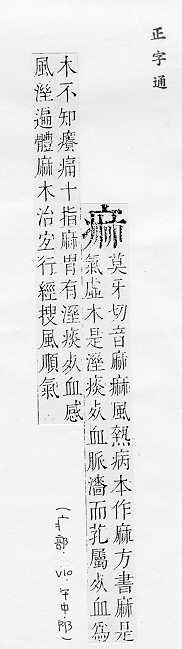 正字通
痲
莫牙切音麻痲風熱病本作麻方書麻是
氣虛木是溼痰死血脈濇而芤屬死血爲
木不知癢痛十指麻胃有溼痰死血感
風溼遍體麻木治宐行經搜風順氣
(疒部.V10.午中